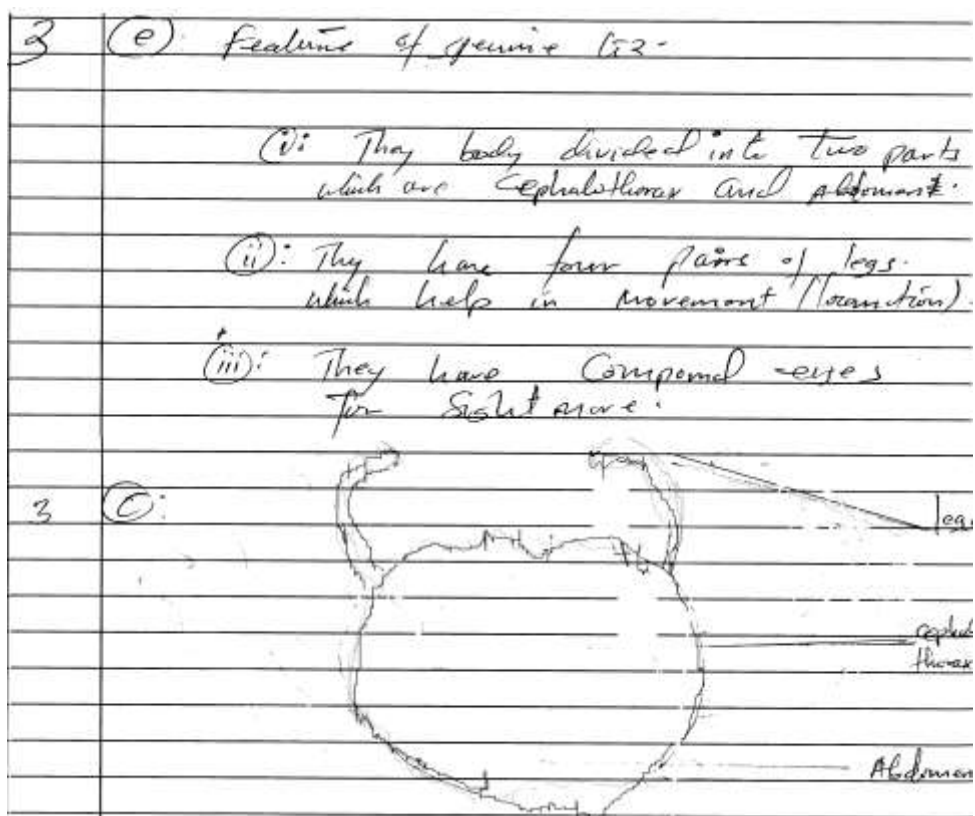 3 (e). Feature of genuine G2.
(i): They body divided into two parts
which are Cephalothorax and Abdomen.
(ii): Thy have four pairs of legs.
which help in movement
(iii): They have Compound eyes
for Sight
3 (c):
legs
cephalo
thorax
Abdomen